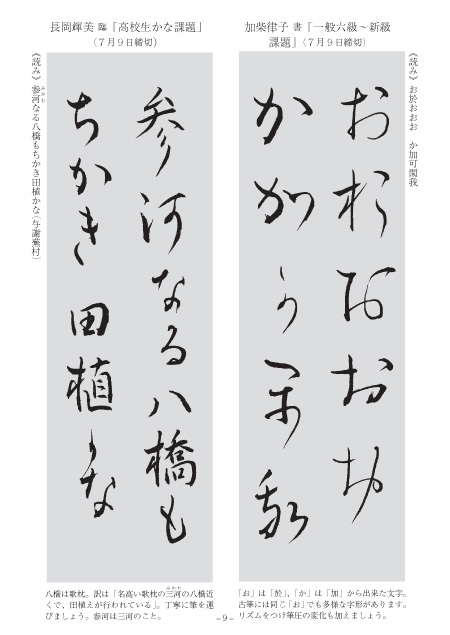 加柴律子 書「一般六級〜新級
課題」(7月9日締切)
《読み》 お於おおお か加可閑我
お於おおお
か加可閑我
「お」は「於」、「か」は「加」から出来た文字。
古筆には同じ「お」でも多様な字形があります。
リズムをつけ筆圧の変化も加えましょう。
長岡輝美 臨「高校生かな課題」
(7月9日締切)
《読み》 参河なる八橋もちかき田植かな(与謝蕪村)
みかわ
参河なる八橋も
ちかき田植うな
八橋は歌枕。訳は「名高い歌枕の三河の八橋近
みかわ
くで、田植えが行われている」。丁寧に筆を運
びましょう。参河は三河のこと。
- 9 -